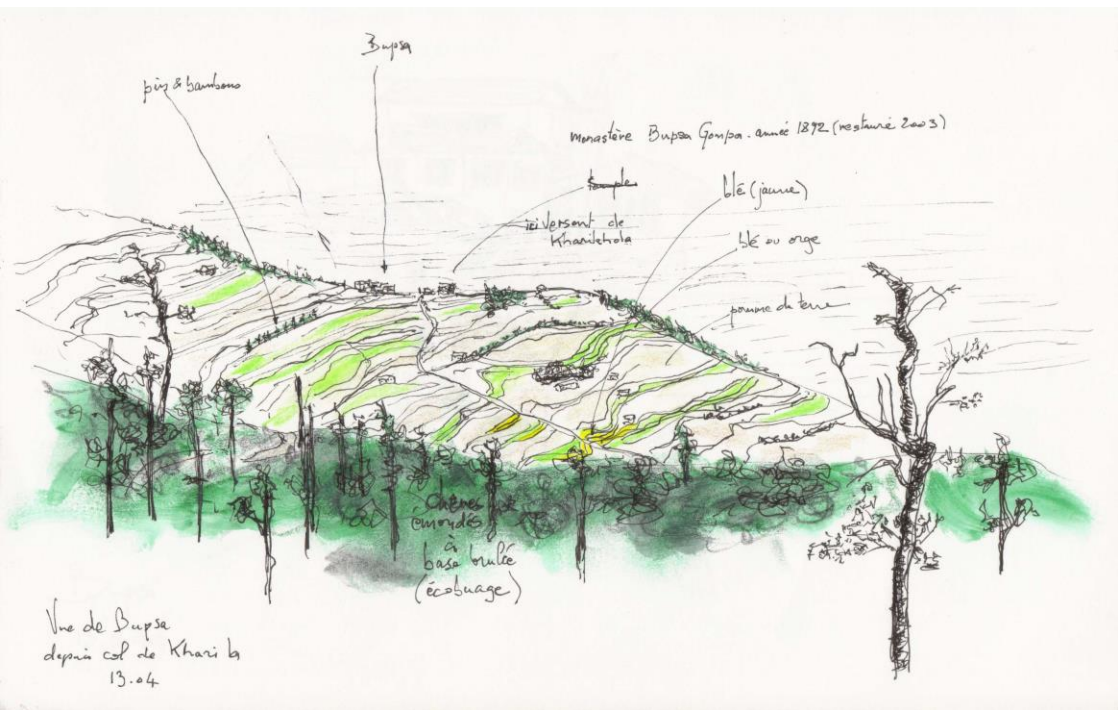 Bupsa
pins & bambous
monastère Bupsa Gonpa. année 1892 (restauré 2003)
temple
ici versant de
Kharikhola
blé (jaune)
blé ou orge
pomme de terre
chênes
émondés
à
base brulée
(écobuage)
Vue de Bupsa
depuis col de Khari la
13.04